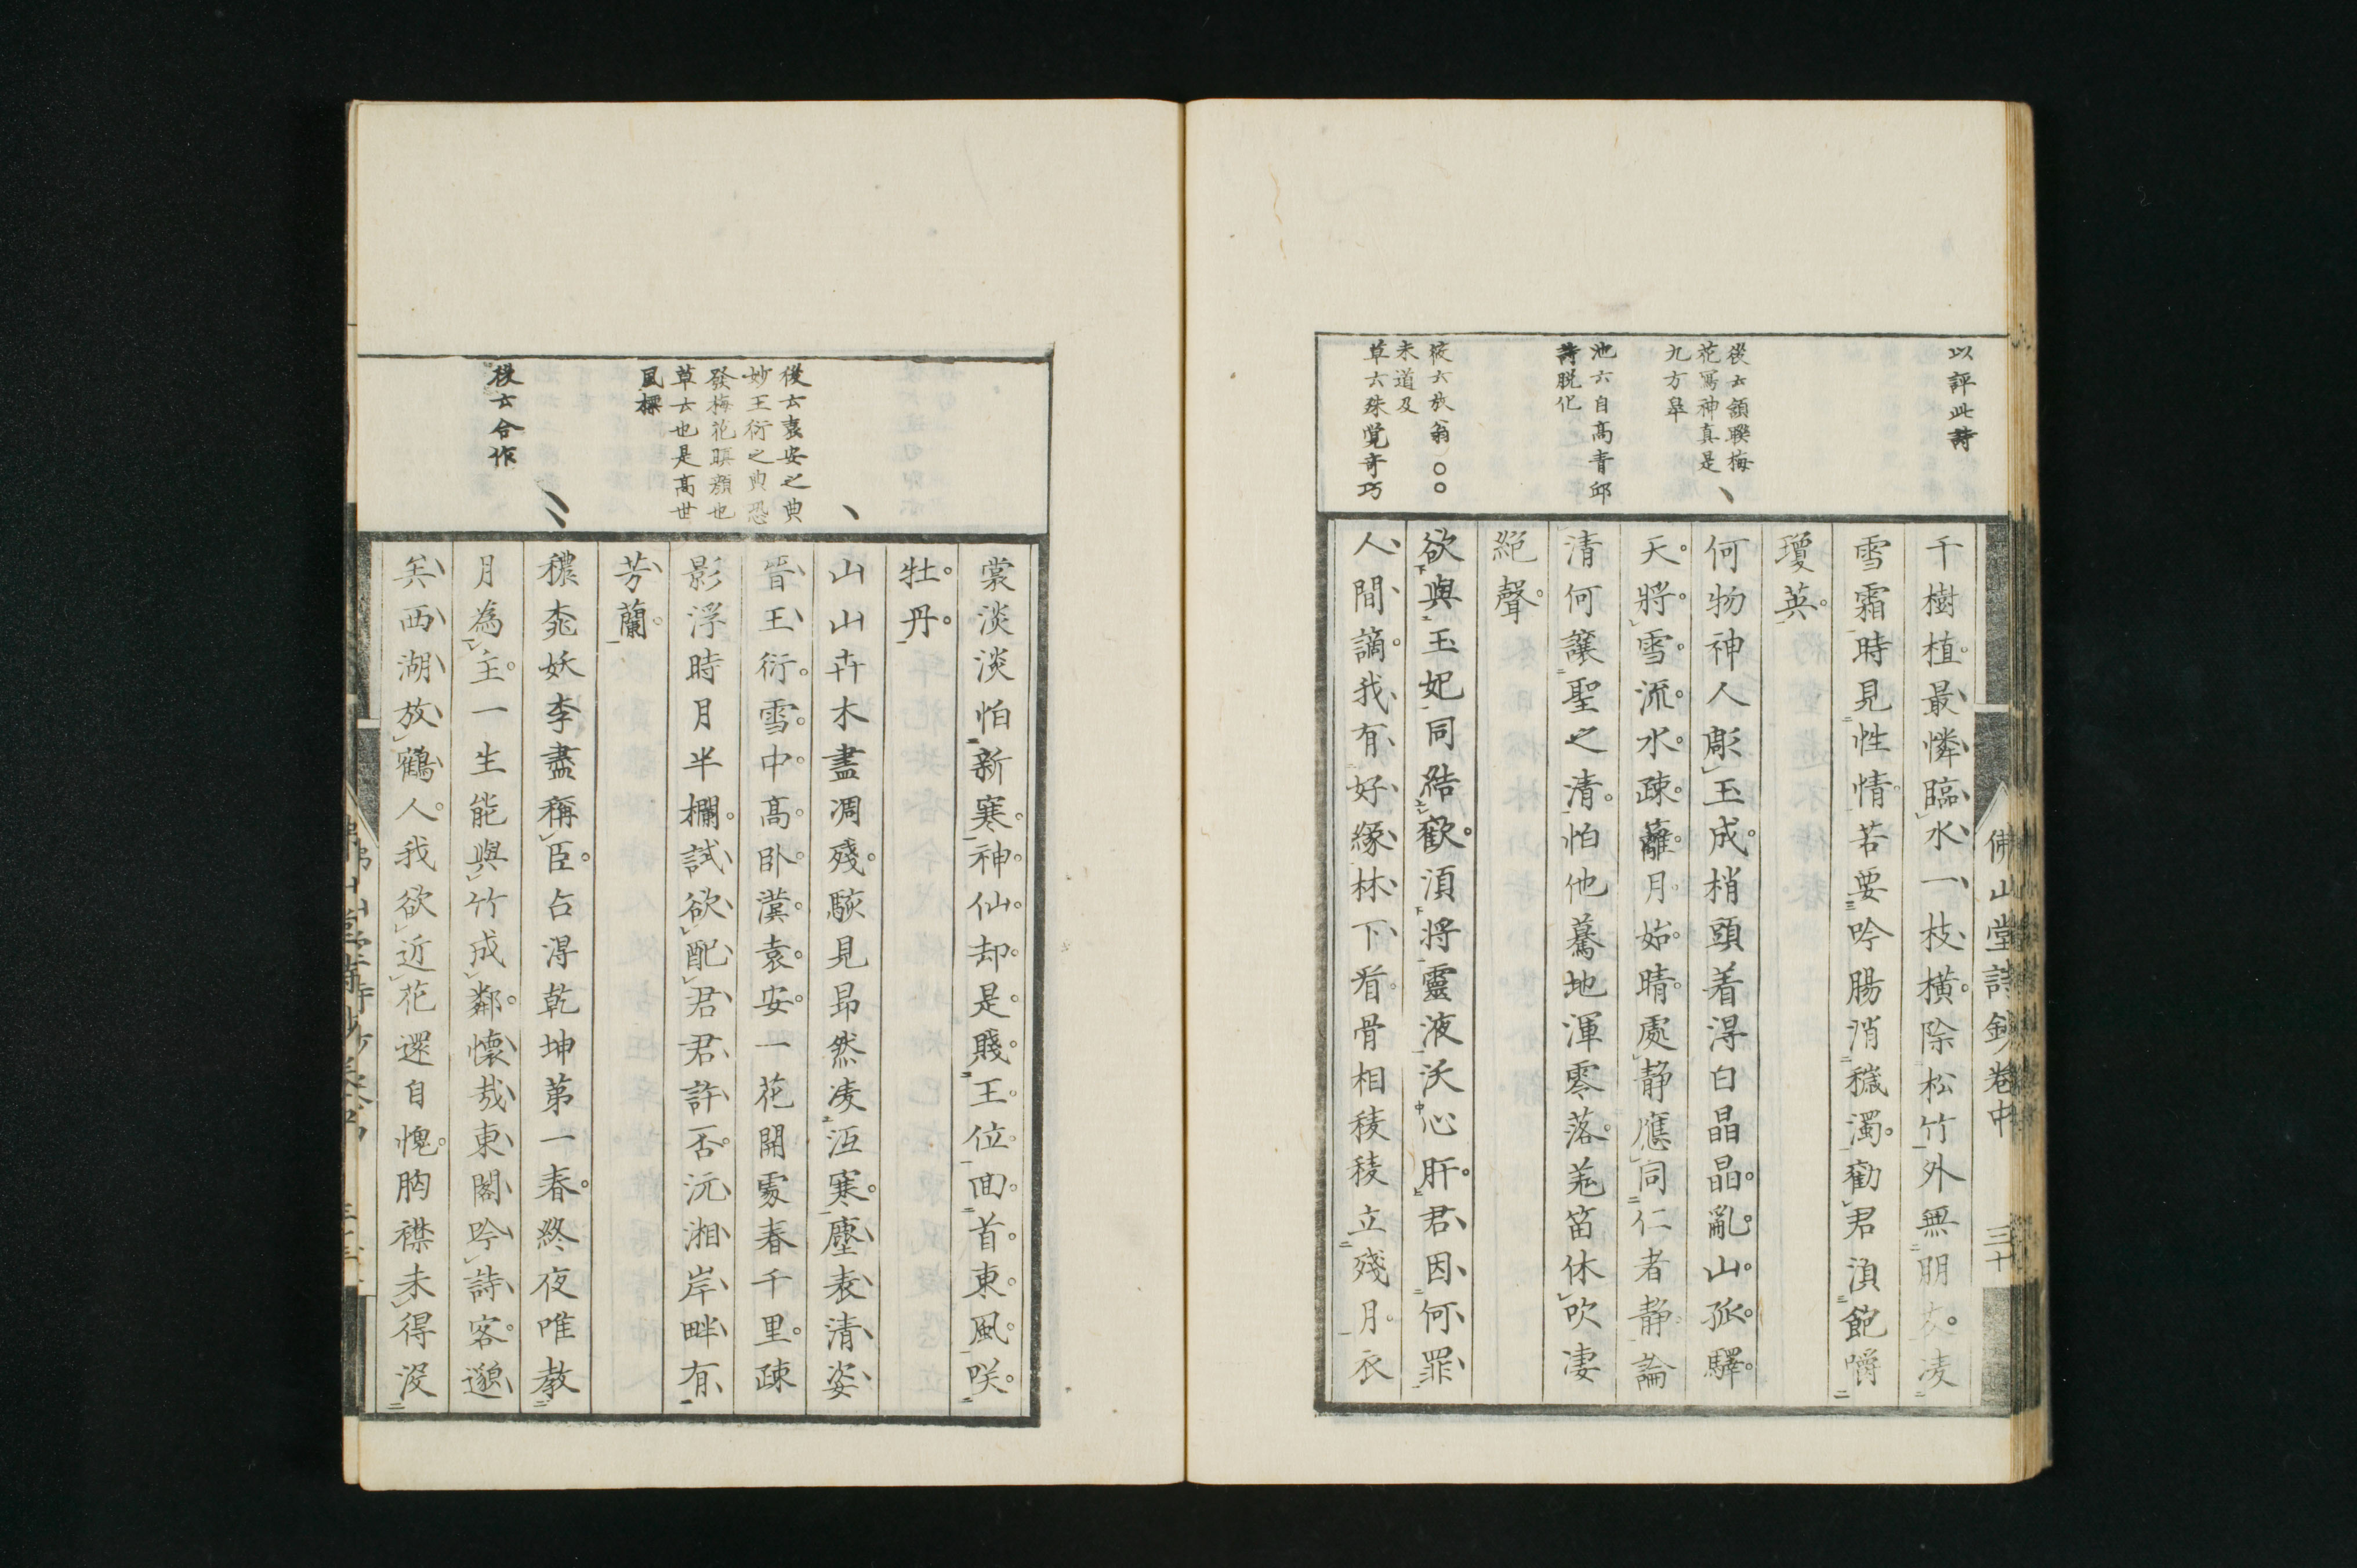 以評此詩
後云頷聯梅
花寫神真是
九方皐
池云自高青邱
詩脱化
後云放翁
未道及
草云殊覚奇巧
佛山堂詩鈔卷中
三十
千樹植最憐臨水一枝横除松竹外無朋友凌
雪霜時見性情若要吟腸消穢濁勸君須飽嚼
瓊英
何物神人彫玉成梢頭着得白晶晶亂山孤驛
天將雪流水疎蘺月始晴處静應同仁者静論
清何讓聖之清怕他驀地渾零落羌笛休吹凄
絶聲
欲與玉妃同結歡須將靈液沃心肝君因何罪
人間謫我有好縁林下看骨相稜稜立殘月衣
後云袁安之典
妙王衍之典恐
發梅花瞋顔也
草云也是高世
風標
後云合作
裳淡淡怕新寒神仙却是賤王位囬首東風咲
牡丹
山山卉木盡凋殘駭見昻然凌沍寒塵表清姿
晉王衍雪中高卧漢袁安一花開處春千里疎
影浮時月半欄試欲配君君許否沅湘岸畔有
芳蘭
穠桃妖李盡稱臣占得乾坤第一春終夜唯教
月為主一生能與竹成鄰懷哉東閣吟詩客邈
矣西湖放鶴人我欲近花還自愧胸襟未得没